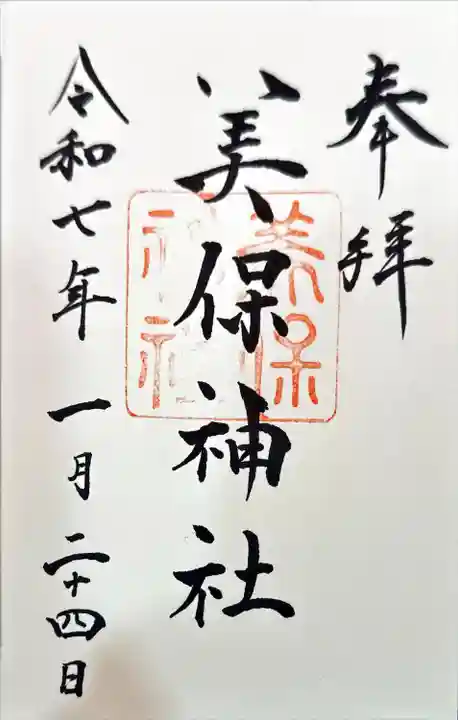 奉拝
美保神社
美保
神社
令和七年 一月 二十四日